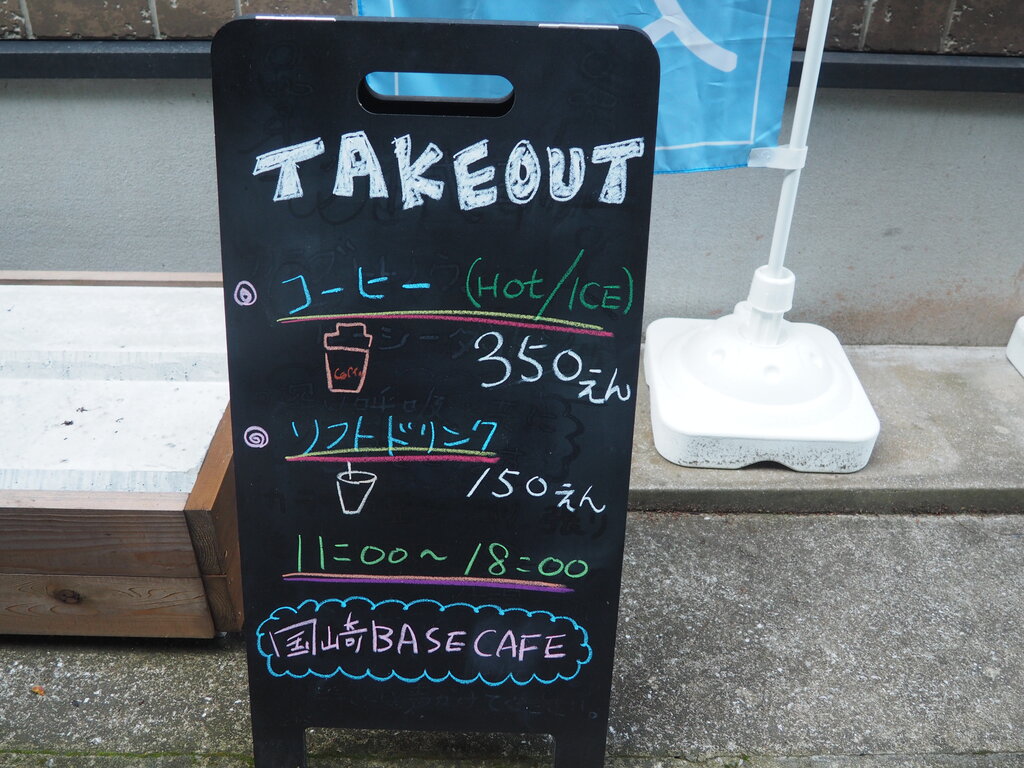 TAKEOUT
コーヒー (HOt/ICE)
350えん
ソフトドリンク
150えん
11:00〜18:00
国崎BASE CAFE